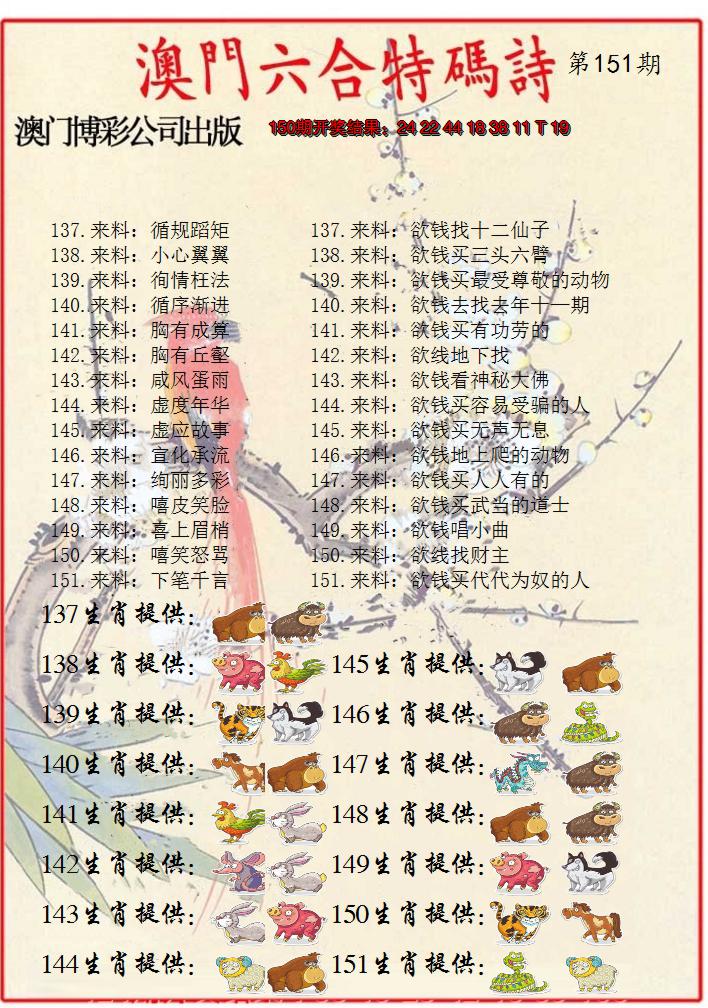 澳門六合特碼詩 第151期
澳门博彩公司出版 150期开奖结果：24 22 44 18 38 11 T 19
137.来料：循规蹈矩 137.来料：欲钱找十二仙子
138.来料：小心翼翼 138.来料：欲钱买三头六臂
139.来料：徇情枉法 139.来料：欲钱买最受尊敬的动物
140.来料：循序渐进 140.来料：欲钱去找去年十一期
141.来料：胸有成算 141.来料：欲钱买有功劳的
142.来料：胸有丘壑 142.来料：欲线地下找
143.来料：咸风蛋雨 143.来料：欲钱看神秘大佛
144.来料：虚度年华 144.来料：欲钱买容易受骗的人
145.来料：虚应故事 145.来料：欲钱买无声无息
146.来料：宣化承流 146.来料：欲钱地上爬的动物
147.来料：绚丽多彩 147.来料：欲钱买人人有的
148.来料：嘻皮笑脸 148.来料：欲钱买武当的道士
149.来料：喜上眉梢 149.来料：欲钱唱小曲
150.来料：嘻笑怒骂 150.来料：欲线找财主
151.来料：下笔千言 151.来料：欲钱买代代为奴的人
137生肖提供：
138生肖提供： 145生肖提供：
139生肖提供： 146生肖提供：
140生肖提供： 147生肖提供：
141生肖提供： 148生肖提供：
142生肖提供： 149生肖提供：
143生肖提供： 150生肖提供：
144生肖提供： 151生肖提供：